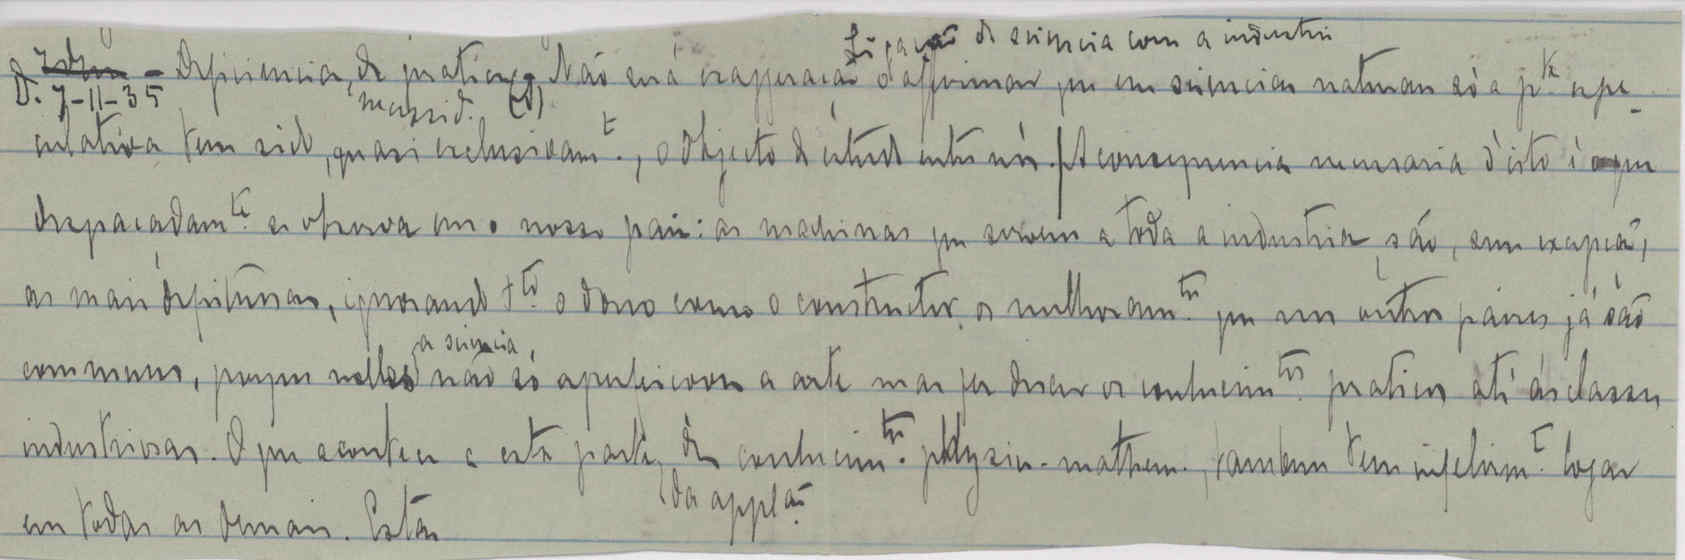 Ligação da sciencia com a industria
Idem - Deficiencia de pratica. Não será exageração o affirmar que em sciencias naturaes só a pte espe-
D. 7-11-35 necessid. (d)
culativa tem sido, quasi exclusivamte, o objecto de estudo entre nós. A consequencia necessaria d'isto é o que
desgraçadamte se observa em o nosso paiz: as machinas que servem a toda a industria são, sem excepção,
as mais defeituosas, ignorando tto o dono como o constructor, os melhoramtos que em outros paizes já são
a sciencia
communs, porque nelles não só aperfeiçoou a arte mas fez descer os conhecimtos praticos até ás classes
industriosas. O que acontece a esta parte dos conhecimtos physico-mathem. tambem tem infelizmte logar
da applção
em todas as demais. Estas